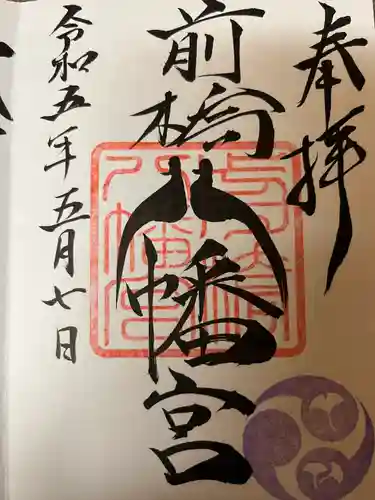 奉拝
前橋八幡宮
令和五年五月七日